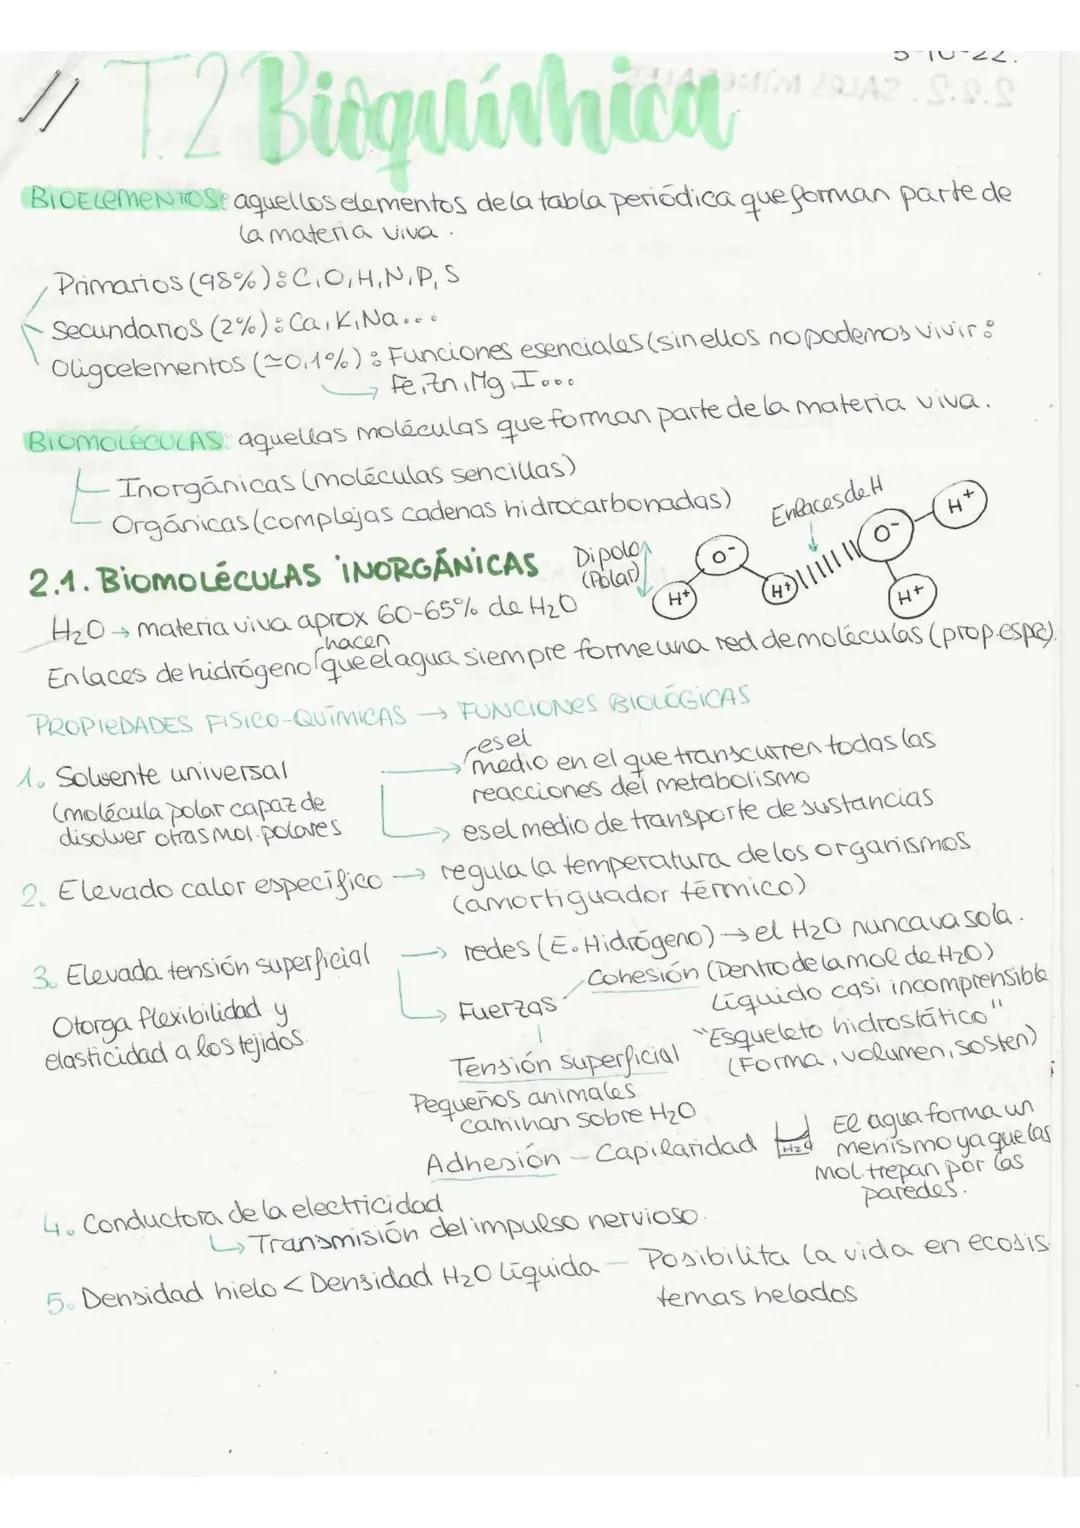 5-10-22.
T.2 Bioquímica
BIOELEMENTOS: aquellos elementos de la tabla periódica que forman parte de
la materia viva.
Primarios (98%): C, O, H, N, P, S
Secundarios (2%): Ca, K, Na...
Oligoelementos (≃0,1%): Funciones esenciales (sin ellos no podemos vivir:
→ Fe, Zn, Mg, I...
BIOMOLÉCULAS: aquellas moléculas que forman parte de la materia viva.
Inorgánicas (moléculas sencillas)
Orgánicas (complejas cadenas hidrocarbonadas)
Enlaces de H
2.1. BIOMOLÉCULAS INORGÁNICAS
Dipolo
(Polar)
H+ O- H+ O- H+ H+
H2O → materia viva aprox 60-65% de H2O
hacen
Enlaces de hidrógeno que el agua siempre forme una red de moléculas (prop. espe).
PROPIEDADES FISICO-QUÍMICAS → FUNCIONES BIOLÓGICAS
1. Solvente universal
(molécula polar capaz de
disolver otras mol. polares
es el
→ medio en el que transcurren todas las
reacciones del metabolismo
→ es el medio de transporte de sustancias
2. Elevado calor específico → regula la temperatura de los organismos
(amortiguador térmico)
3. Elevada tensión superficial
Otorga flexibilidad y
elasticidad a los tejidos.
→ redes (E. Hidrógeno) → el H2O nunca va sola.
→ Fuerzas
Cohesión (Dentro de la mol de H2O)
Líquido casi incomprensible
"Esqueleto hidrostático"
(Forma, volumen, sosten)
Tensión superficial
Pequeños animales
caminan sobre H2O
Adhesión - Capilaridad
H2O
El agua forma un
menismo ya que las
mol. trepan por las
paredes.
4. Conductora de la electricidad
↳ Transmisión del impulso nervioso.
5. Densidad hielo < Densidad H2O líquida - Posibilita la vida en ecosis
temas helados